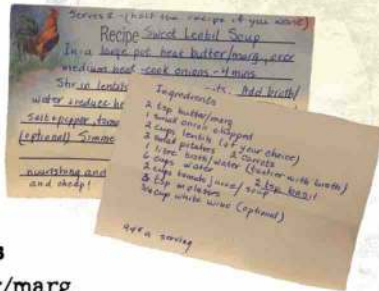 Serves 8 - (half the recipe if you want)
Recipe Sweet Lentil Soup
In a large pot heat butter/marg, over
medium heat - cook onions - 4 mins
Stir in lentils Add broth/
water & reduce
Salt & pepper,
(optional) Simme
nourishing and
and cheap!
Ingredients
2 tsp butter/marg
1 small onion chopped
2 cups lentils (of your choice)
2 carrots
1 litre broth/water (tastier with broth)
6 cups water
2 cups tomato juice/soup 2 tsp basil
3 tsp molasses
3/4 cup white wine (optional)
a serving
s
/marg